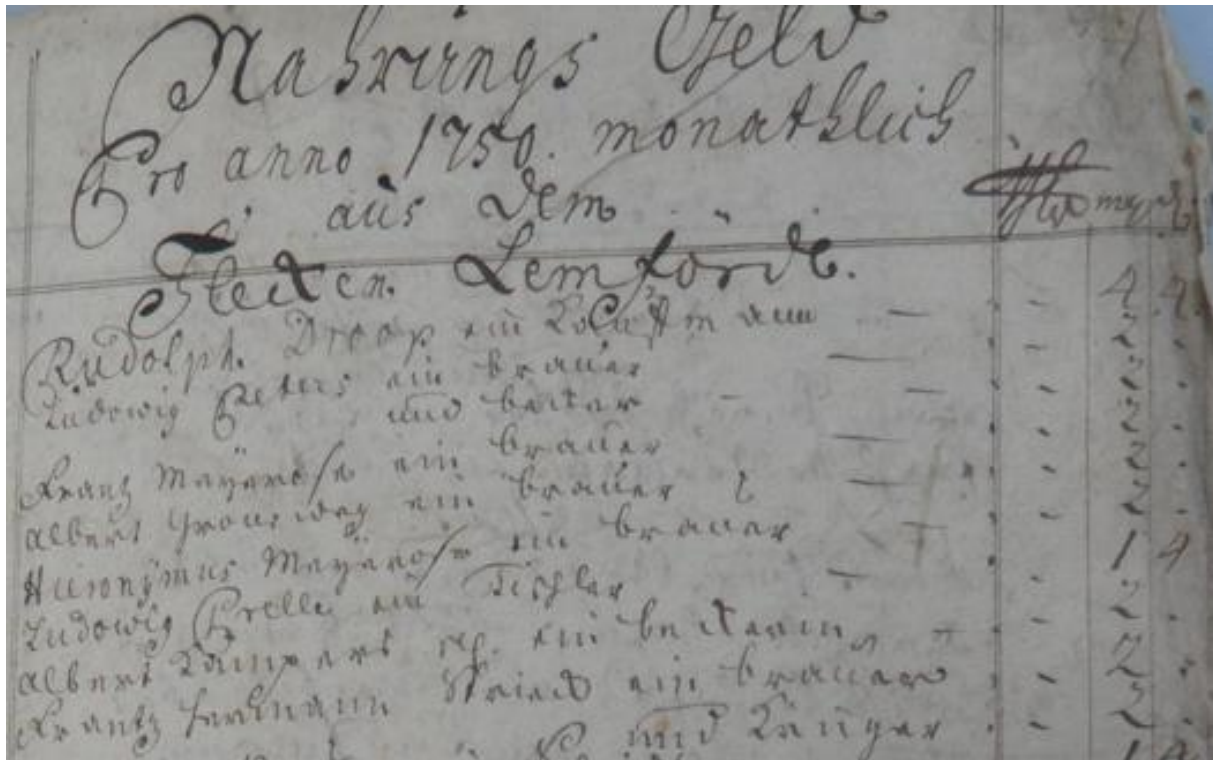 Nahrungs Geld
Pro anno 1750. monathlich
aus dem
Flecken Lemförde.
Rthlr mgr
Rudolph Droop ein Kauffmann — - - 4 4
Ludowig Peters ein brauer — - - 2 -
und becker - - - 2 -
Frantz Meÿerose ein brauer — - - 2 -
Albert ein brauer — - - 2 -
Hieronÿmus Meÿerose ein brauer — - - 2 -
Ludowig Prelle ein Tischler — - - 1 4
Albert ein beckerin - - 2 -
Frantz Hermann ein brauer - - 2 -
und - - 2 -